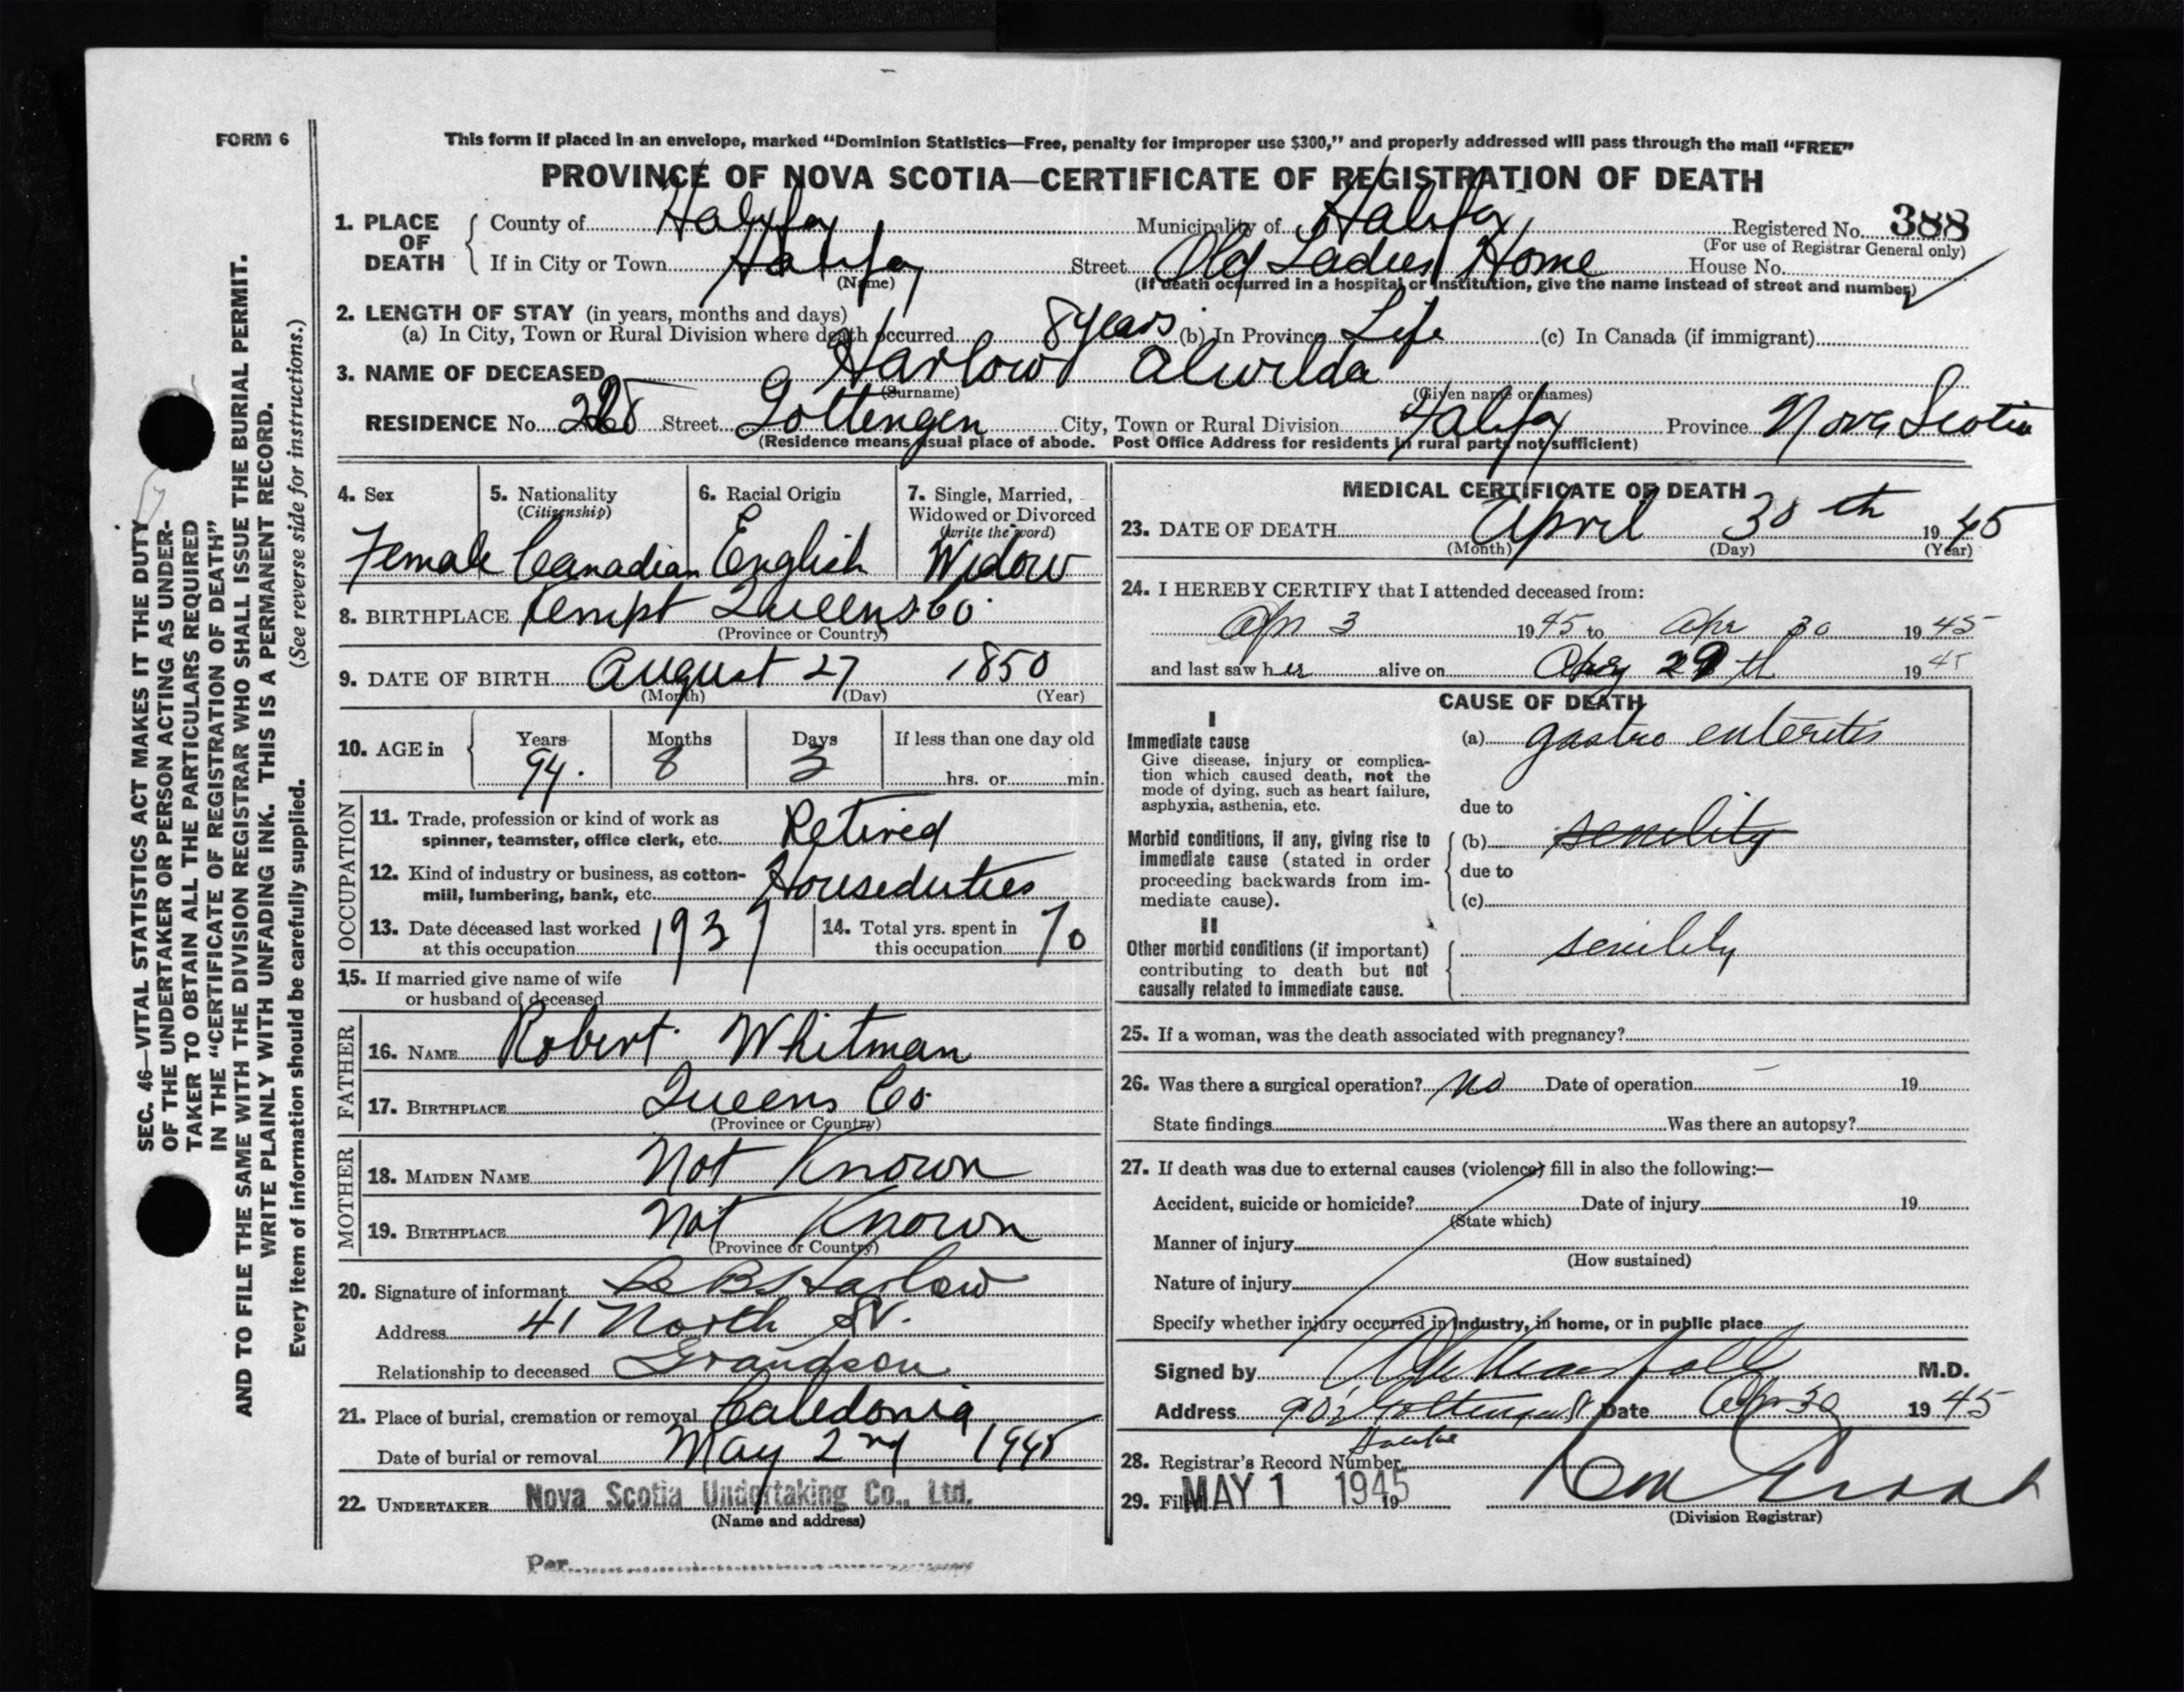 FORM 6
This form if placed in an envelope, marked “Dominion Statistics—Free, penalty for improper use $300,” and properly addressed will pass through the mail “FREE”
PROVINCE OF NOVA SCOTIA—CERTIFICATE OF REGISTRATION OF DEATH
1. PLACE OF DEATH
County of Halifax Municipality of Halifax Registered No. 388
(For use of Registrar General only)
If in City or Town Halifax Street Old Ladies Home House No.
(Name) (If death occurred in a hospital or institution, give the name instead of street and number)
2. LENGTH OF STAY (in years, months and days)
(a) In City, Town or Rural Division where death occurred 8 years (b) In Province Life (c) In Canada (if immigrant)
3. NAME OF DECEASED Harlow Alwilda
(Surname) (Given name or names)
RESIDENCE No. Street Gottengen City, Town or Rural Division Halifax Province Nova Scotia
(Residence means usual place of abode. Post Office Address for residents in rural parts not sufficient)
4. Sex Female
5. Nationality (Citizenship) Canadian
6. Racial Origin English
7. Single, Married, Widowed or Divorced (write the word) Widow
8. BIRTHPLACE Kempt Queens Co.
(Province or Country)
9. DATE OF BIRTH August 27 1850
(Month) (Day) (Year)
10. AGE in Years 94. Months 8 Days 3 If less than one day old
hrs. or min.
OCCUPATION
11. Trade, profession or kind of work as
spinner, teamster, office clerk, etc. Retired
12. Kind of industry or business, as cotton-
mill, lumbering, bank, etc. Houseduties
13. Date deceased last worked
at this occupation 1937
14. Total yrs. spent in
this occupation 70
15. If married give name of wife
or husband of deceased
FATHER
16. NAME Robert Whitman
17. BIRTHPLACE Queens Co.
(Province or Country)
MOTHER
18. MAIDEN NAME Not Known
19. BIRTHPLACE Not Known
(Province or Country)
20. Signature of informant Harlow
Address 41 North St.
Relationship to deceased Grandson
21. Place of burial, cremation or removal Caledonia
Date of burial or removal May 2nd 1945
22. UNDERTAKER Nova Scotia Undertaking Co., Ltd.
(Name and address)
Per
MEDICAL CERTIFICATE OF DEATH
23. DATE OF DEATH April 30th 1945
(Month) (Day) (Year)
24. I HEREBY CERTIFY that I attended deceased from:
Apr 3 1945 to Apr 30 1945
and last saw her alive on 29th 1945
CAUSE OF DEATH
I
Immediate cause (a) gastro enteritis
Give disease, injury or complica-
tion which caused death, not the
mode of dying, such as heart failure,
asphyxia, asthenia, etc.
due to
Morbid conditions, if any, giving rise to (b) senility
immediate cause (stated in order
proceeding backwards from im-
mediate cause).
due to
(c)
II
Other morbid conditions (if important) senility
contributing to death but not
causally related to immediate cause.
25. If a woman, was the death associated with pregnancy?
26. Was there a surgical operation? No Date of operation 19
State findings Was there an autopsy?
27. If death was due to external causes (violence) fill in also the following:—
Accident, suicide or homicide? Date of injury 19
(State which)
Manner of injury
(How sustained)
Nature of injury
Specify whether injury occurred in industry, in home, or in public place
Signed by M.D.
Address Gottengen St Date Apr 30 1945
Halifax
28. Registrar's Record Number
29. Filed MAY 1 1945 19
(Division Registrar)
SEC. 46—VITAL STATISTICS ACT MAKES IT THE DUTY
OF THE UNDERTAKER OR PERSON ACTING AS UNDER-
TAKER TO OBTAIN ALL THE PARTICULARS REQUIRED
IN THE “CERTIFICATE OF REGISTRATION OF DEATH”
AND TO FILE THE SAME WITH THE DIVISION REGISTRAR WHO SHALL ISSUE THE BURIAL PERMIT.
WRITE PLAINLY WITH UNFADING INK. THIS IS A PERMANENT RECORD.
Every item of information should be carefully supplied. (See reverse side for instructions.)